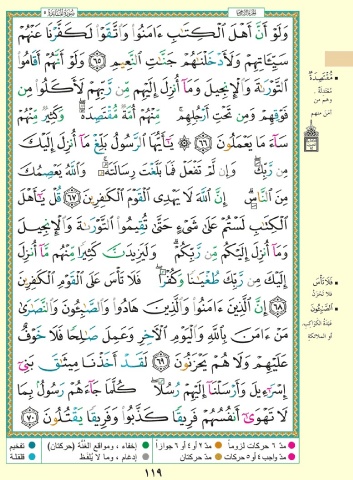 سُورَةُ المَائِدَةِ ٥
وَلَوْ أَنَّ أَهْلَ الْكِتَٰبِ ءَامَنُوا وَاتَّقَوْا لَكَفَّرْنَا عَنْهُمْ
سَيِّـَٔاتِهِمْ وَلَأَدْخَلْنَٰهُمْ جَنَّٰتِ النَّعِيمِ ٦٥ وَلَوْ أَنَّهُمْ أَقَامُوا
التَّوْرَىٰةَ وَالْإِنجِيلَ وَمَا أُنزِلَ إِلَيْهِم مِّن رَّبِّهِمْ لَأَكَلُوا مِن
فَوْقِهِمْ وَمِن تَحْتِ أَرْجُلِهِم ۚ مِّنْهُمْ أُمَّةٌ مُّقْتَصِدَةٌ ۖ وَكَثِيرٌ مِّنْهُمْ
سَاءَ مَا يَعْمَلُونَ ٦٦ ۞ يَٰأَيُّهَا الرَّسُولُ بَلِّغْ مَا أُنزِلَ إِلَيْكَ
مِن رَّبِّكَ ۖ وَإِن لَّمْ تَفْعَلْ فَمَا بَلَّغْتَ رِسَالَتَهُ ۚ وَاللَّهُ يَعْصِمُكَ
مِنَ النَّاسِ ۗ إِنَّ اللَّهَ لَا يَهْدِي الْقَوْمَ الْكَٰفِرِينَ ٦٧ قُلْ يَٰأَهْلَ
الْكِتَٰبِ لَسْتُمْ عَلَىٰ شَيْءٍ حَتَّىٰ تُقِيمُوا التَّوْرَىٰةَ وَالْإِنجِيلَ
وَمَا أُنزِلَ إِلَيْكُم مِّن رَّبِّكُمْ ۗ وَلَيَزِيدَنَّ كَثِيرًا مِّنْهُم مَّا أُنزِلَ
إِلَيْكَ مِن رَّبِّكَ طُغْيَٰنًا وَكُفْرًا ۖ فَلَا تَأْسَ عَلَى الْقَوْمِ الْكَٰفِرِينَ
٦٨ إِنَّ الَّذِينَ ءَامَنُوا وَالَّذِينَ هَادُوا وَالصَّٰبِـُٔونَ وَالنَّصَٰرَىٰ
مَنْ ءَامَنَ بِاللَّهِ وَالْيَوْمِ الْآخِرِ وَعَمِلَ صَٰلِحًا فَلَا خَوْفٌ
عَلَيْهِمْ وَلَا هُمْ يَحْزَنُونَ ٦٩ لَقَدْ أَخَذْنَا مِيثَٰقَ بَنِي
إِسْرَٰءِيلَ وَأَرْسَلْنَا إِلَيْهِمْ رُسُلًا ۖ كُلَّمَا جَاءَهُمْ رَسُولٌ بِمَا
لَا تَهْوَىٰ أَنفُسُهُمْ فَرِيقًا كَذَّبُوا وَفَرِيقًا يَقْتُلُونَ ٧٠
مُقْتَصِدَةٌ
مُعْتَدِلَةٌ
وهم من
آمن منهم
فَلَا تَأْسَ
فلا تَحْزَنْ
الصَّٰبِـُٔونَ
عَبَدَةُ الكَوَاكِبِ
أو الملائكةِ
مدّ ٦ حركات لزوماً
مدّ ٢ أو ٤ أو ٦ جوازاً
إخفاء، ومواقع الغُنَّة (حركتان)
تفخيم
مدّ واجب ٤ أو ٥ حركات
مدّ حركتان
إدغام، وما لا يُلفَظ
قلقلة
١١٩